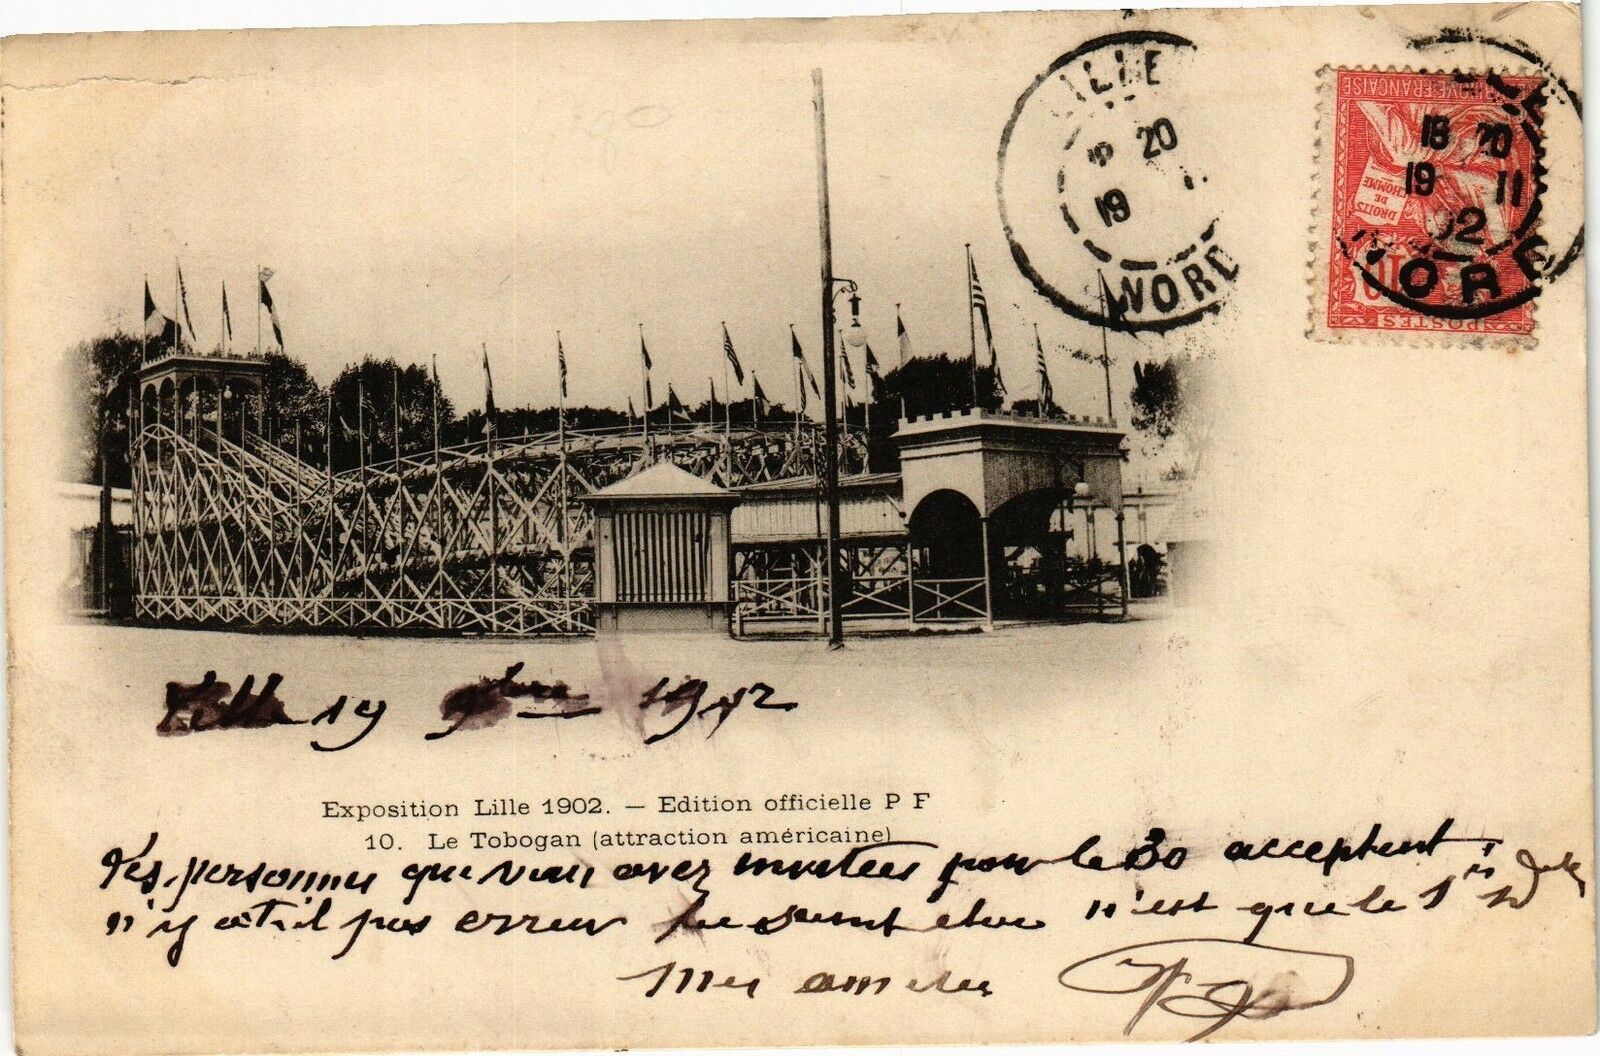 LILLE
20
19
NORD
POSTES
10
DROITS
DE
L'HOMME
REPUBLIQUE FRANÇAISE
18 20
19 11
02
NORD
Lille 19 9bre 1902
Exposition Lille 1902. — Edition officielle P F
10. Le Tobogan (attraction américaine)
Les personnes que vous avez invitées pour le 30 acceptent
n'y a-t-il pas erreur la Saint Eloi n'est que le 1er
Mes amitiés